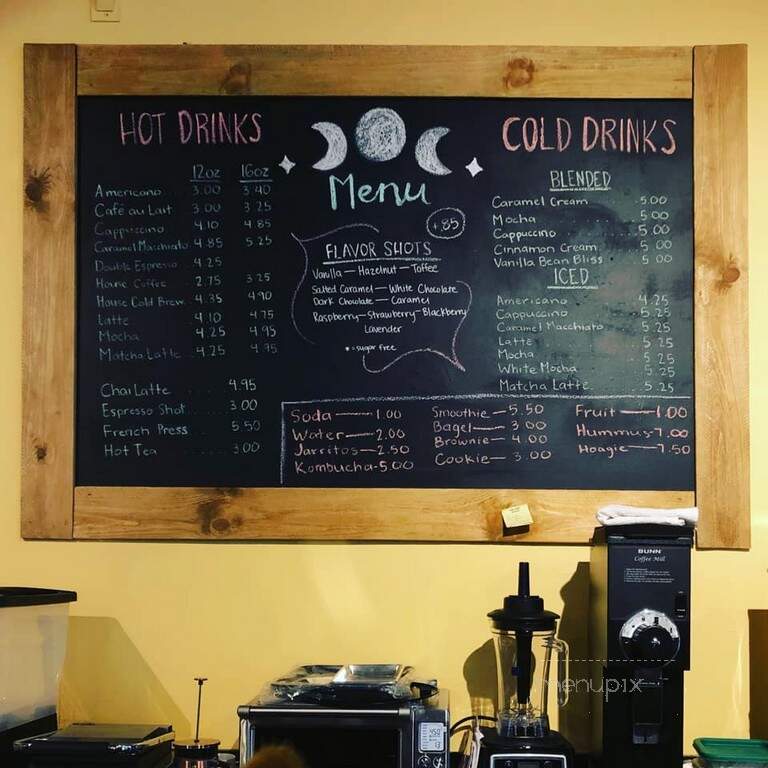 HOT DRINKS
12oz 16oz
Americano 3.00 3.40
Café au Lait 3.00 3.25
Cappuccino 4.10 4.85
Caramel Macchiato 4.85 5.25
Double Espresso 4.25
House Coffee 2.75 3.25
House Cold Brew 4.35 4.90
Latte 4.10 4.75
Mocha 4.25 4.95
Matcha Latte 4.25 4.95
Chai Latte 4.95
Espresso Shot 3.00
French Press 5.50
Hot Tea 3.00
Menu
+.85
FLAVOR SHOTS
Vanilla — Hazelnut — Toffee
Salted Caramel — White Chocolate
Dark Chocolate — Caramel
Raspberry — Strawberry — Blackberry
Lavender
* = sugar free
COLD DRINKS
BLENDED
Caramel Cream 5.00
Mocha 5.00
Cappuccino 5.00
Cinnamon Cream 5.00
Vanilla Bean Bliss 5.00
ICED
Americano 4.25
Cappuccino 5.25
Caramel Macchiato 5.25
Latte 5.25
Mocha 5.25
White Mocha 5.25
Matcha Latte 5.25
Soda — 1.00
Water — 2.00
Jarritos — 2.50
Kombucha - 5.00
Smoothie — 5.50
Bagel — 3.00
Brownie — 4.00
Cookie — 3.00
Fruit — 1.00
Hummus - 7.00
Hoagie — 7.50
BUNN
Coffee Mill
menupix